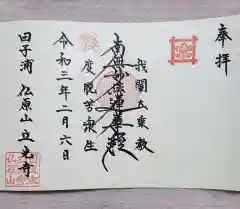 奉拝
我闡大乗教
南無妙法蓮華経
度脱苦衆生
令和三年二月六日
田子浦 仏原山 立光寺